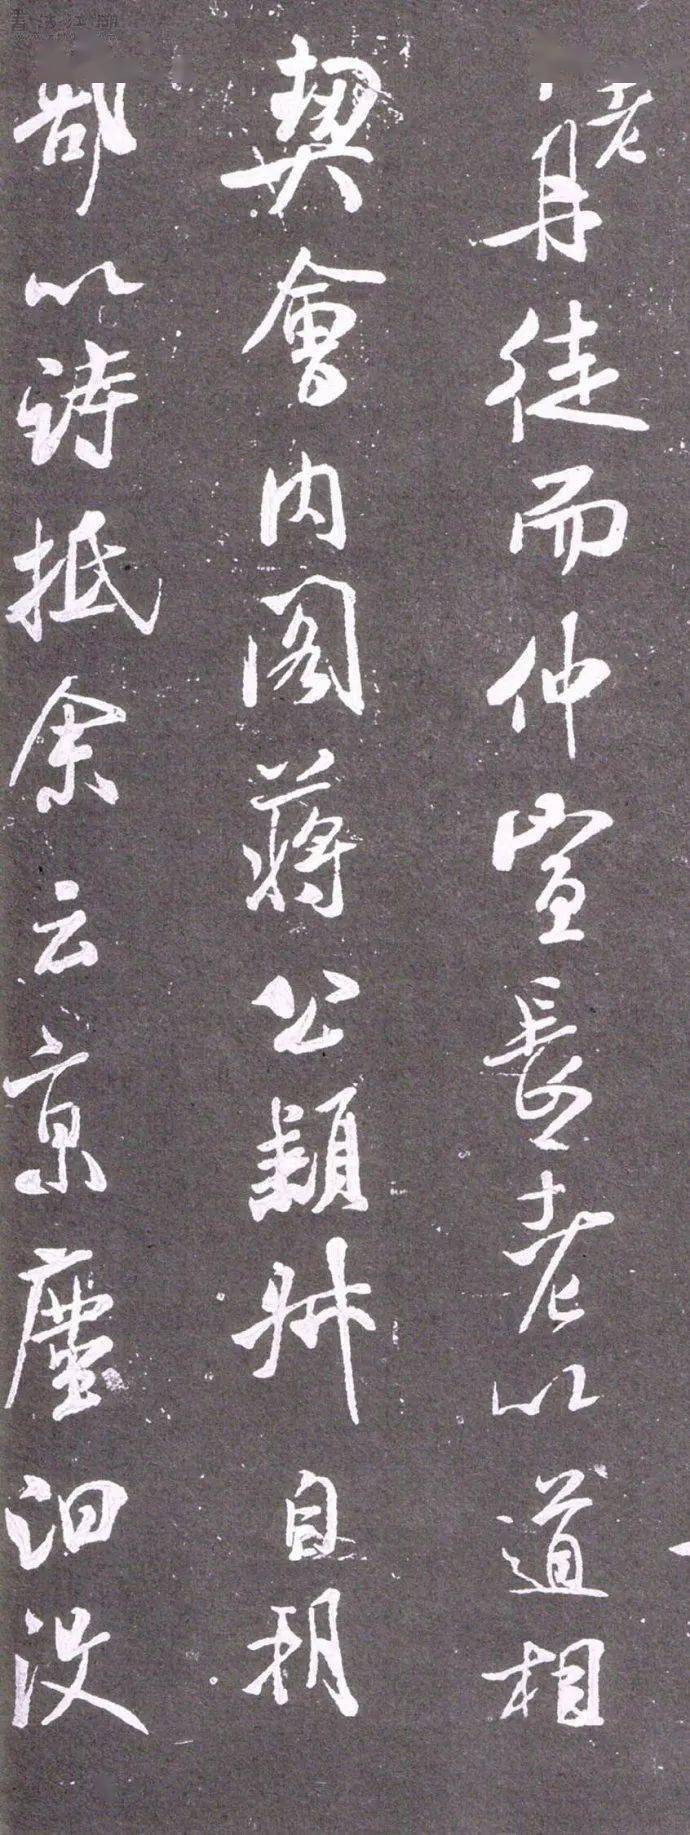 老
身徒而仲宣長老以道相
契會内閣蔣公穎叔自
部以詩抵余云京塵汩没